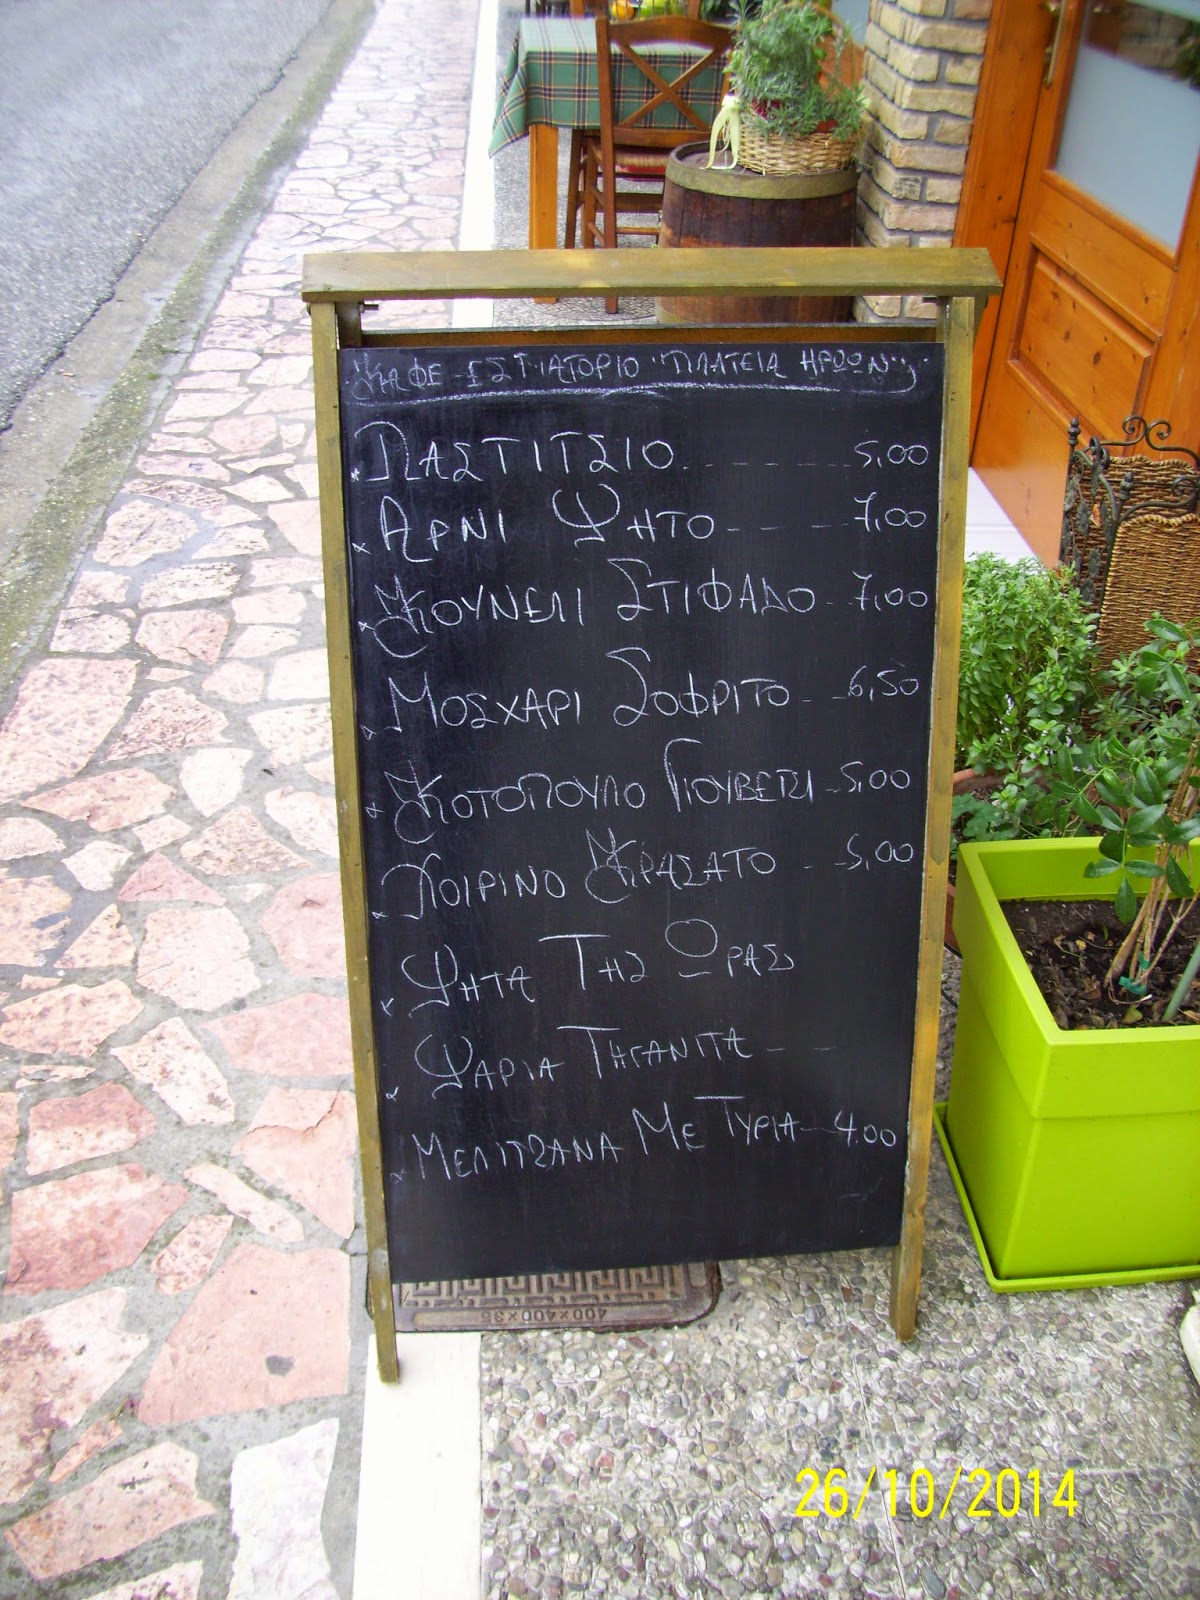 ΚΑΦΕ - ΕΣΤΙΑΤΟΡΙΟ "ΠΛΑΤΕΙΑ ΗΡΩΩΝ"
* ΠΑΣΤΙΤΣΙΟ. . - - - - . . 5,00
x ΑΡΝΙ ΨΗΤΟ - - - - 7,00
x ΚΟΥΝΕΛΙ ΣΤΙΦΑΔΟ - - 7,00
x ΜΟΣΧΑΡΙ ΣΟΦΡΙΤΟ - - 6,50
x ΚΟΤΟΠΟΥΛΟ ΓΙΟΥΒΕΤΣΙ - 5,00
x ΧΟΙΡΙΝΟ ΚΡΑΣΑΤΟ - - 5,00
x ΨΗΤΑ ΤΗΣ ΩΡΑΣ
x ΨΑΡΙΑ ΤΗΓΑΝΙΤΑ - -
x ΜΕΛΙΤΖΑΝΑ ΜΕ ΤΥΡΙΑ - - 4.00
400×400×35
26/10/2014